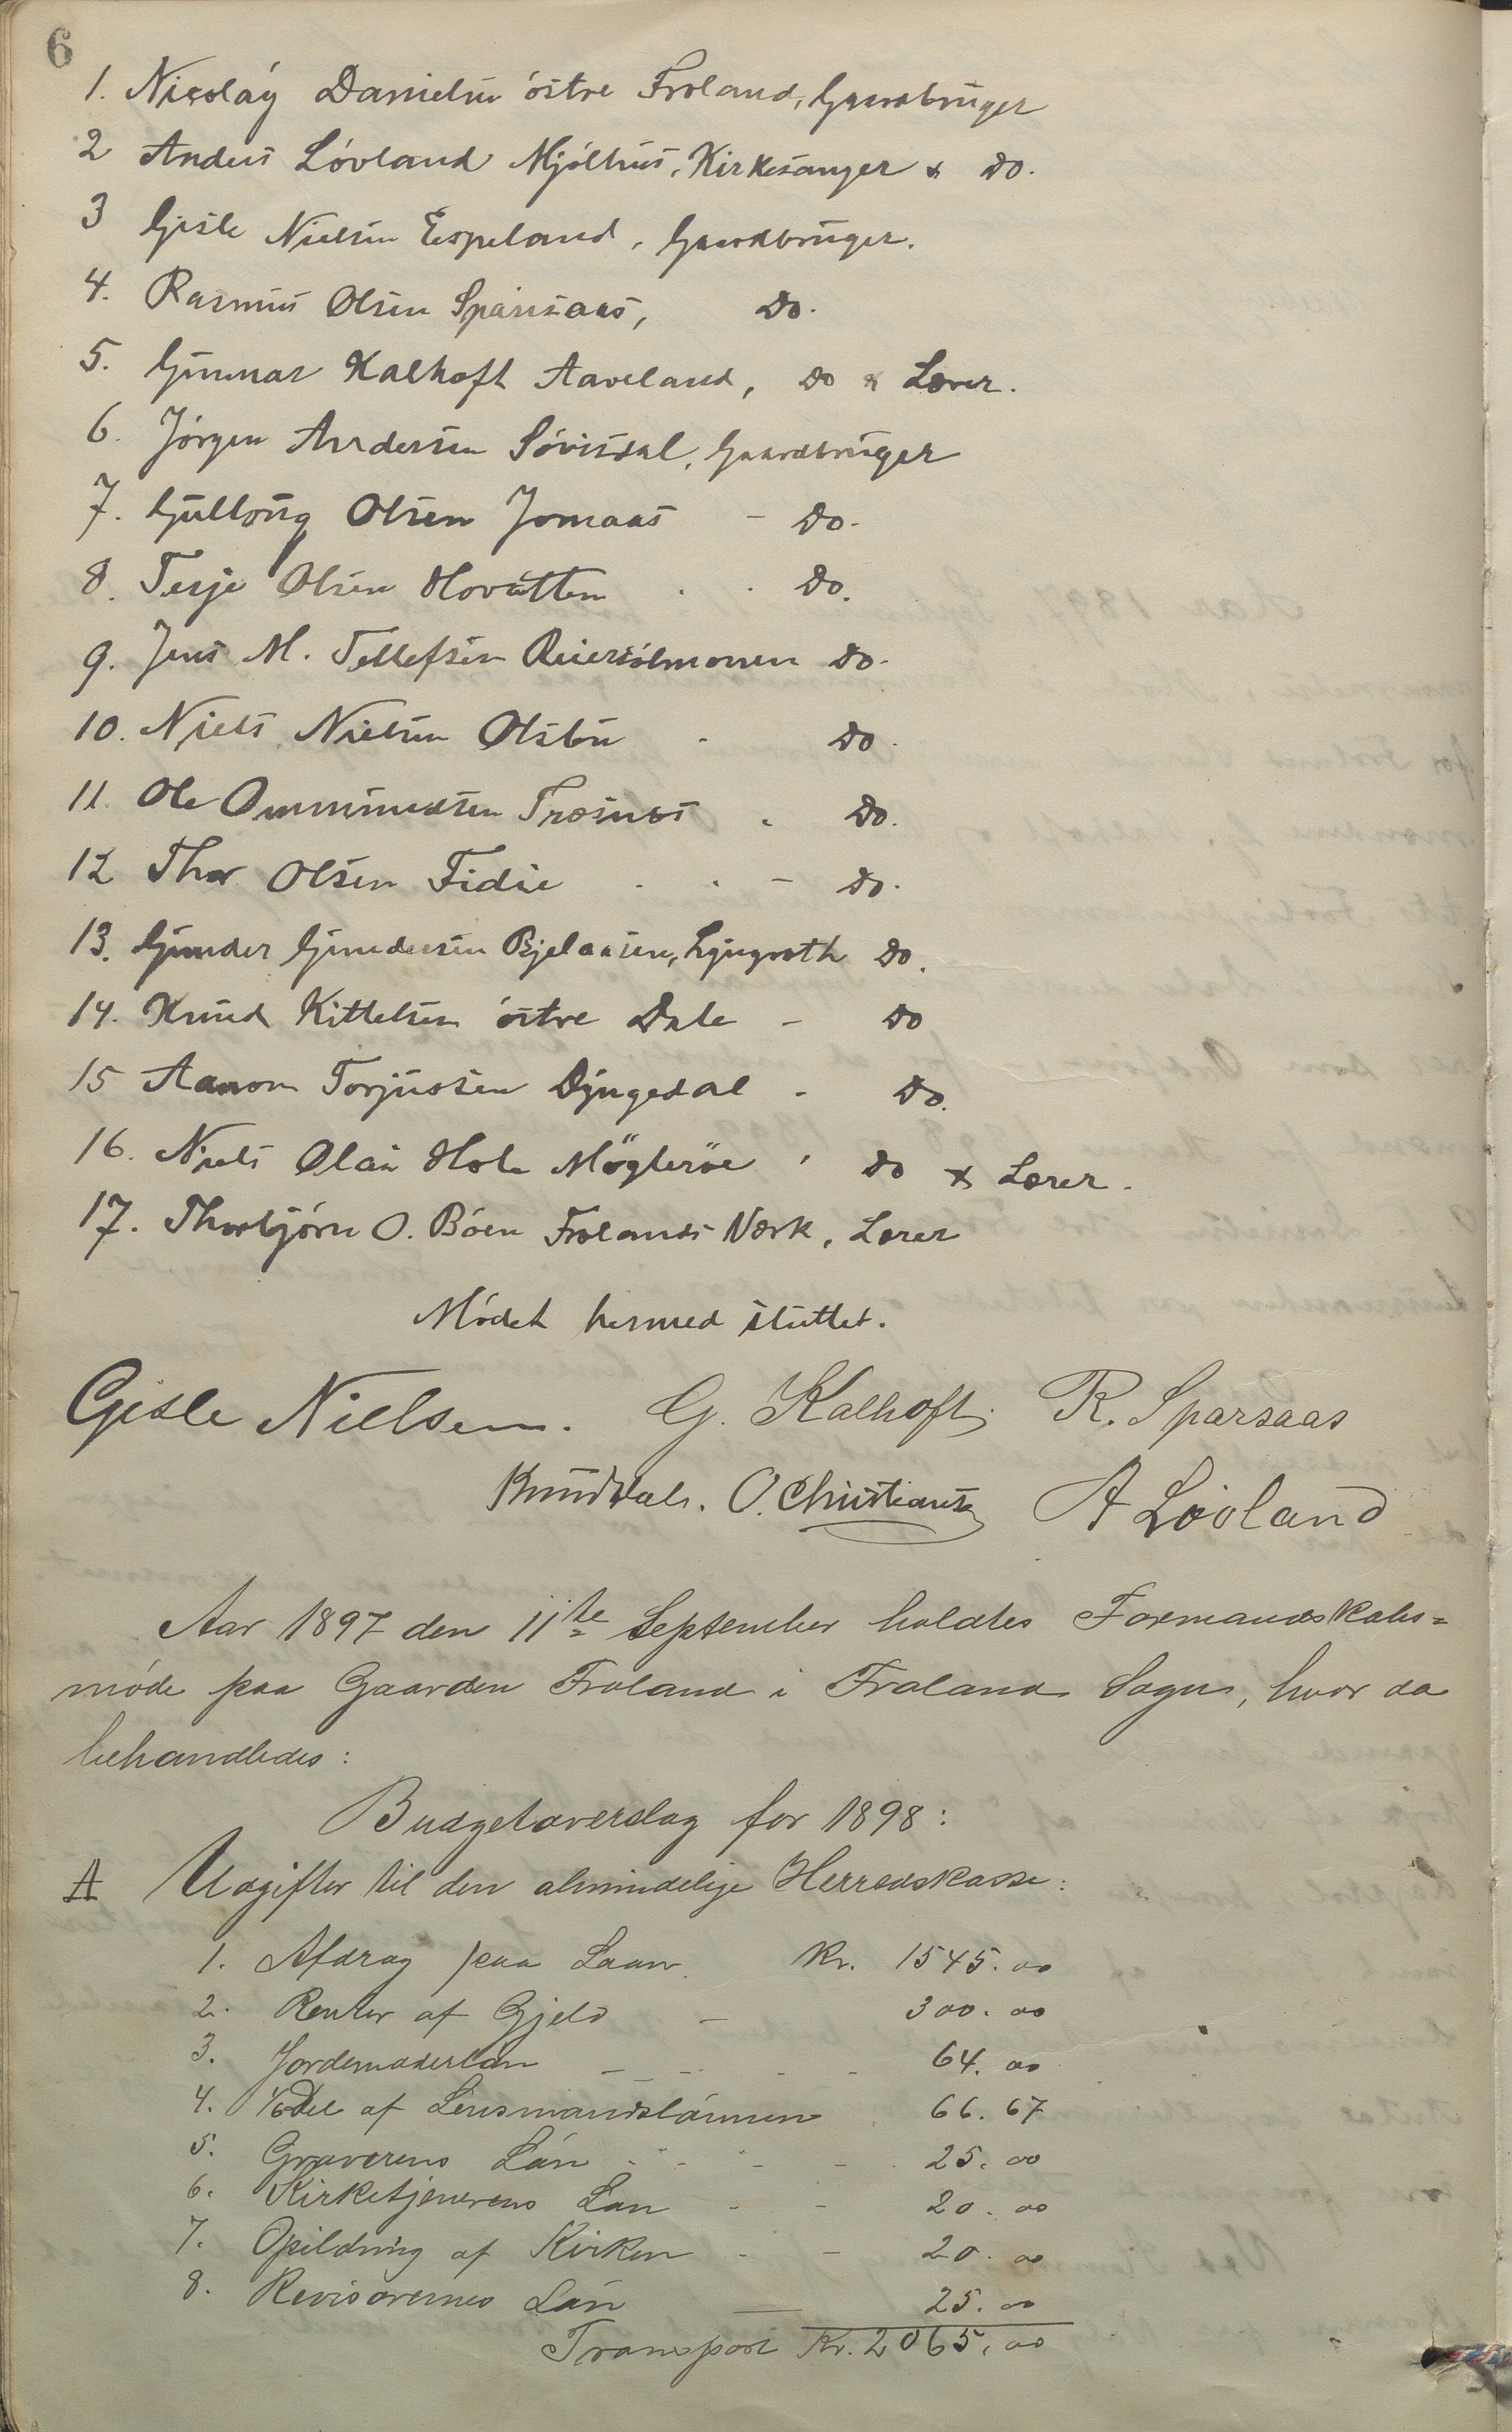 6
1. Nicolay Danielsen östre Froland, Gaardbruger
2 Anders Lövland Mjölhus, Kirkesanger & Do.
3 Gisle Nielsen Espeland, Gaardbruger.
4. Rasmus Olsen Sparsaas, Do.
5. Gunnar Kalhoft Aaveland, Do & Lærer.
6. Jörgen Andersen Sövisdal, Gaardbruger
7. Gullbrig Olsen Jomaas - Do.
8. Terje Olsen Hovatten . . Do.
9. Jens M. Tellefsen Reiersölmonen Do.
10. Niels Nielsen Olsbu - Do.
11. Ole Ommundsen Træsnes . Do.
12 Thor Olsen Fidie . . - Do.
13. Gunder Gundersen Bjelaasen, Lyngroth Do.
14. Knud Kittelsen östre Dale - Do
15 Aanon Torjussen Dyngedal - Do.
16. Niels Olai Hole Möglesöe ' Do & Lærer.
17. Thorbjörn O. Böen Frolands Værk, Lærer
Mödet hermed sluttet.
Gisle Nielsen. G. Kalhoft. R. Sparsaas
Knud Dale. O. Christiansen A Lövland
Aar 1897 den 11te September holdtes Formandskabs=
möde paa Gaarden Froland i Froland Sogn, hvor da
behandledes:
Budgetoverslag for 1898:
A Udgifter til den almindelige Herredskasse:
1. Afdrag paa Laan Kr. 1545.00
2. Renter af Gjeld - 300.00
3. Jordemoderlön - - - - 64.00
4. 1/6 Del af Lensmandslönnen 66.67
5. Graverens Lön - - - - 25.00
6. Kirketjenerens Lön - - 20.00
7. Opildning af Kirken - - 20.00
8. Revisorernes Lön - 25.00
Transport Kr. 2065.00